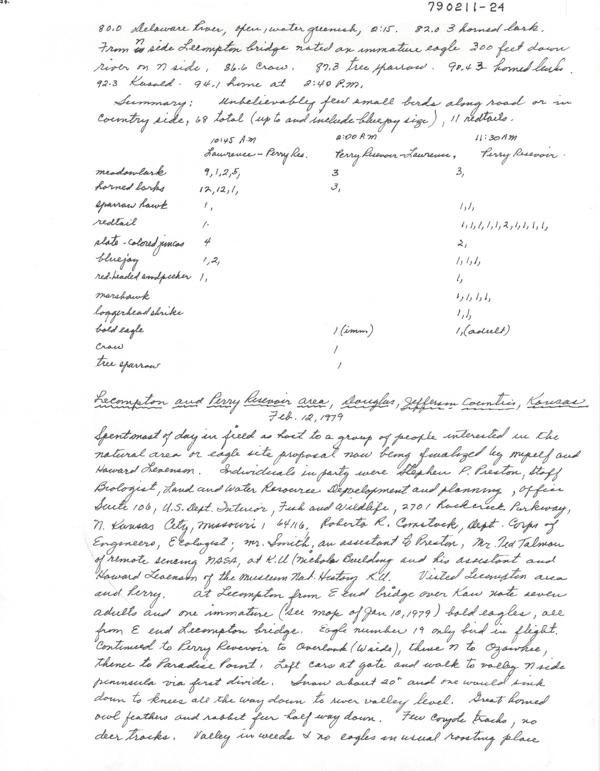 790211-24
80.0 Delaware River, open, water greenish, 2:15. 82.0 3 horned lark.
From N side Lecompton bridge noted an immature eagle 300 feet down
river on N side, 86.6 crow. 87.3 tree sparrow. 90.4 3 horned larks.
92.3 Kasold. 94.1 home at 2:40 P.M.
Summary: Unbelievably few small birds along road or in
country side, 68 total (up to and include bluejay size), 11 redtails.
10:45 A.M 2:00 P.M 11:30 A.M
Lawrence - Perry Res. Perry Reservoir - Lawrence, Perry Reservoir.
meadowlark 9,1,2,5, 3 3,
horned larks 12,12,1, 3,
sparrow hawk 1, 1,1,
redtail 1. 1,1,1,1,1,2,1,1,1,1,
slate-colored juncos 4 2,
bluejay 1,2, 1,1,1,
red-headed woodpecker 1, 1,
marshawk 1,1,1,1,
loggerhead shrike 1,1,
bald eagle 1 (imm) 1, (adult)
crow 1
tree sparrow 1
Lecompton and Perry Reservoir area, Douglas, Jefferson Counties, Kansas
Feb. 12, 1979
Spent most of day in field as host to a group of people interested in the
natural area or eagle site proposal now being finalized by myself and
Howard Levenson. Individuals in party were Stephen P. Preston, Staff
Biologist, Land and Water Resource Development and planning, Office
Suite 106, U.S. Dept. Interior, Fish and Wildlife, 2701 Rockcreek Parkway,
N. Kansas City, Missouri, 64116, Roberta R. Comstock, Dept. Corps of
Engineers, Ecologist; Mr. Smith, an assistant to Preston, Mr. Ted Talmon
of remote sensing NASA, at K.U (Nichols Building and his assistant and
Howard Levenson of the Museum Nat. History K.U. Visited Lecompton area
and Perry. At Lecompton from E end bridge over Kaw note seven
adults and one immature (see map of Jan 10, 1979) bald eagles, all
from E end Lecompton bridge. Eagle number 19 only bird in flight.
Continued to Perry Reservoir to Overlook (W side), thence N to Ozawkie,
thence to Paradise Point. Left cars at gate and walk to valley N side
peninsula via first divide. Snow about 20" and one would sink
down to knees all the way down to river valley level. Great horned
owl feathers and rabbit fur half way down. Few coyote tracks, no
deer tracks. Valley in weeds & no eagles in usual roosting place